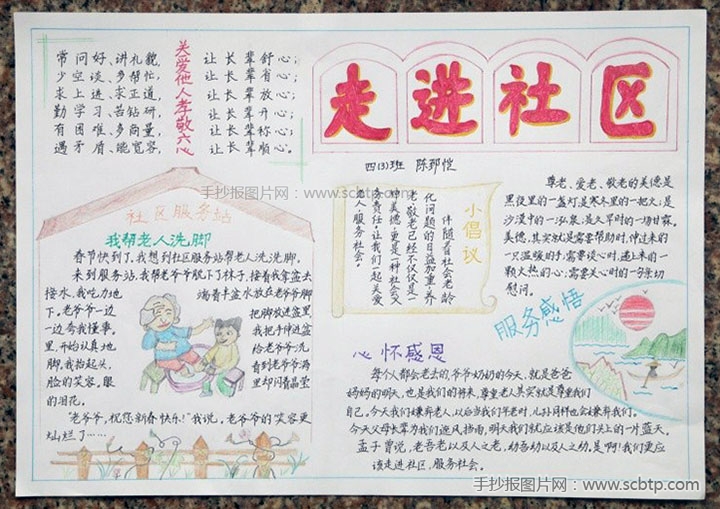 走进社区
四(3)班
关爱他人孝敬六心
常问好、讲礼貌, 让长辈舒心;
少空谈、多帮忙, 让长辈省心;
求上进、求正道, 让长辈放心;
勤学习、苦钻研, 让长辈开心;
有困难、多商量, 让长辈称心;
遇矛盾、能宽容, 让长辈顺心。
手抄报图片网:www.scbtp.com
社区服务站
我帮老人洗脚
春节快到了,我想到社区服务站帮老人洗脚。
来到服务站,我帮老爷爷脱下了袜子,接着我拿盆去
接水,我吃力地端着半盆水放在老爷爷脚
下。老爷爷一边把脚放进盆里
一边夸我懂事。我把手伸进盆
里,开始认真地给老爷爷洗
脚,我抬起头,看到老爷爷满
脸的笑容,眼里却闪着晶莹
的泪花。
“老爷爷,祝您新春快乐!”我说。老爷爷的笑容更
灿烂了……
小倡议
伴随着社会老龄
化问题的日益加重,养
老敬老已经不仅仅是一
种美德,更是一种社会义
务责任,让我们一起关爱
老人服务社会。
尊老、爱老、敬老的美德是
黑夜里的一盏灯,是寒冬里的一把火;是
沙漠中的一泓泉,是久旱时的一场甘霖。
美德,其实就是需要帮助时,伸过来的
一只温暖的手;需要谈心时,递上来的一
颗火热的心;需要关心时的一句亲切
慰问。
服务感悟
心怀感恩
每个人都会老去的,爷爷奶奶的今天,就是爸爸
妈妈的明天,也是我们的将来,尊重老人其实就是尊重我们
自己。今天我们嫌弃老人,以后当我们年老时,儿孙同样也会嫌弃我们。
今天父母长辈为我们遮风挡雨,明天我们就应该是他们头上的一片蓝天。
孟子曾说,老吾老以及人之老,幼吾幼以及人之幼,是啊!我们更应
该走进社区,服务社会。
手抄报图片网:www.scbtp.com